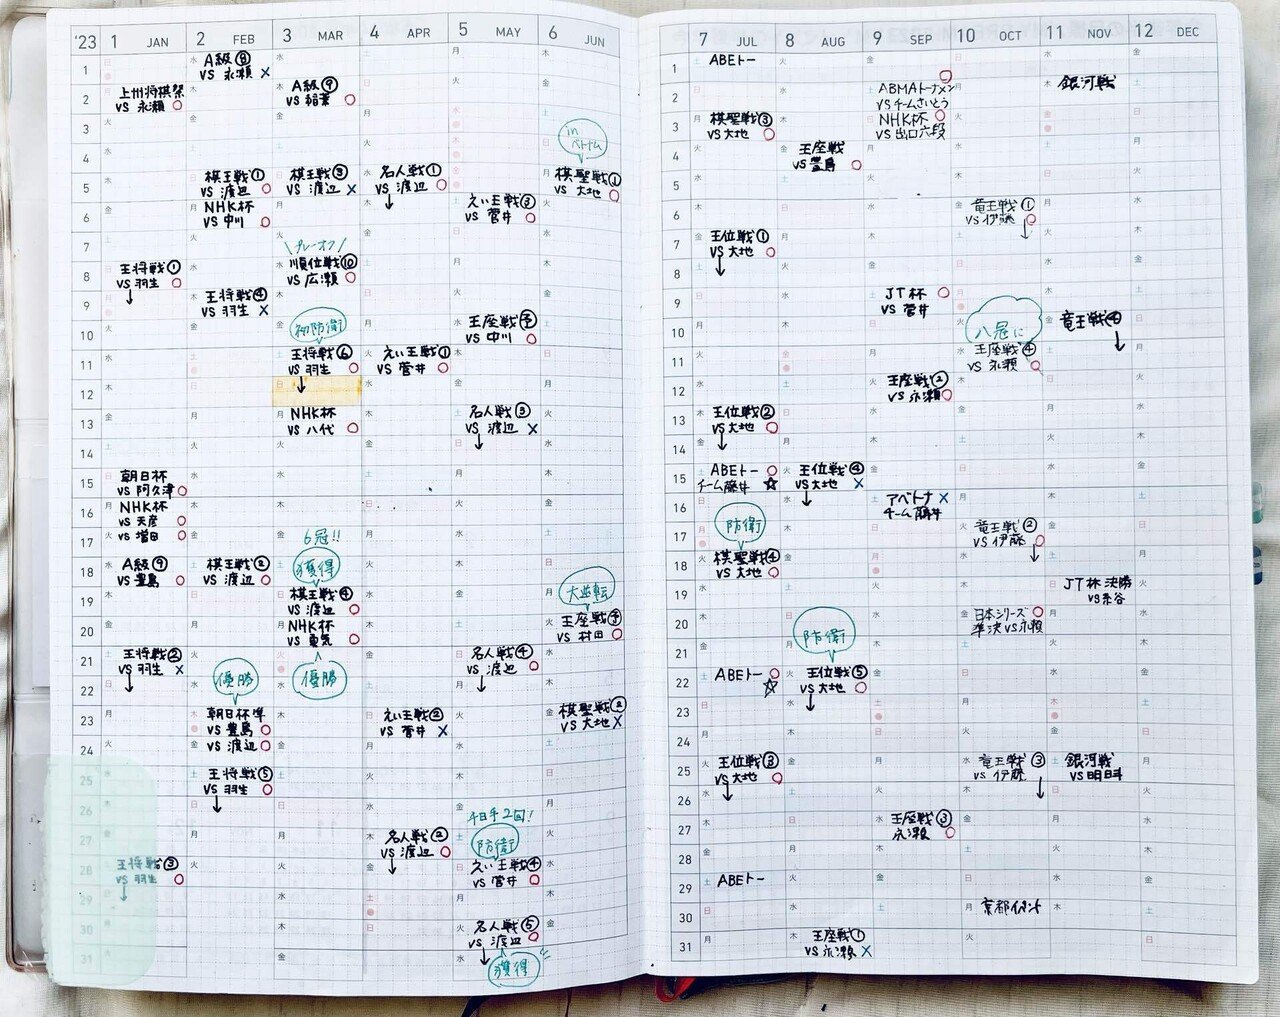 '23
1 JAN
2 FEB
3 MAR
4 APR
5 MAY
6 JUN
上州将棋祭
VS 永瀬 ○
王将戦①
VS 羽生 ○
↓
朝日杯
VS 阿久津 ○
NHK杯
VS 天彦 ○
VS 増田 ○
A級⑨
VS 豊島 ○
王将戦②
VS 羽生 ×
↓
王将戦③
VS 羽生 ○
↓
A級⑧
VS 永瀬 ×
棋王戦①
VS 渡辺 ○
NHK杯
VS 中川 ○
王将戦④
VS 羽生 ×
棋王戦②
VS 渡辺 ○
優勝
朝日杯準
VS 豊島 ○
VS 渡辺 ○
王将戦⑤
VS 羽生 ○
↓
A級⑨
VS 稲葉 ○
棋王戦③
VS 渡辺 ×
\プレーオフ/
順位戦⑩
VS 広瀬 ○
初防衛
王将戦⑥
VS 羽生 ○
↓
NHK杯
VS 八代 ○
6冠!!
獲得
棋王戦④
VS 渡辺 ○
NHK杯
VS 勇気 ○
優勝
名人戦①
VS 渡辺 ○
↓
えい王戦①
VS 菅井 ○
えい王戦②
VS 菅井 ×
名人戦②
VS 渡辺 ○
↓
えい王戦③
VS 菅井 ○
王座戦予
VS 中川 ○
名人戦③
VS 渡辺 ×
↓
名人戦④
VS 渡辺 ○
↓
千日手2回!
防衛
えい王戦④
VS 菅井 ○
名人戦⑤
VS 渡辺 ○
↓
獲得
in
ベトナム
棋聖戦①
VS 大地 ○
大逆転
王座戦予
VS 村田 ○
棋聖戦②
VS 大地 ×
7 JUL
8 AUG
9 SEP
10 OCT
11 NOV
12 DEC
ABEトー
棋聖戦③
VS 大地 ○
王位戦①
VS 大地 ○
↓
王位戦②
VS 大地 ○
↓
ABEトー ○
チーム藤井 ☆
防衛
棋聖戦④
VS 大地 ○
ABEトー ○
☆
王位戦③
VS 大地 ○
↓
ABEトー
王座戦
VS 豊島 ○
王位戦④
VS 大地 ×
↓
防衛
王位戦⑤
VS 大地 ○
↓
王座戦①
VS 永瀬 ×
○
ABMAトーナメン
VS チームさいとう
NHK杯 ○
VS 出口六段
JT杯 ○
VS 菅井
王座戦②
VS 永瀬 ○
アベトナ ×
チーム藤井
王座戦③
永瀬 ○
竜王戦①
VS 伊藤 ○
↓
八冠に
王座戦④
VS 永瀬 ○
竜王戦②
VS 伊藤 ○
↓
日本シリーズ ○
準決 VS 永瀬
竜王戦③
VS 伊藤
↓
京都イベント
銀河戦
竜王戦④
↓
JT杯 決勝
VS 糸谷
銀河戦
VS 明日斗
1
2
3
4
5
6
7
8
9
10
11
12
13
14
15
16
17
18
19
20
21
22
23
24
25
26
27
28
29
30
31